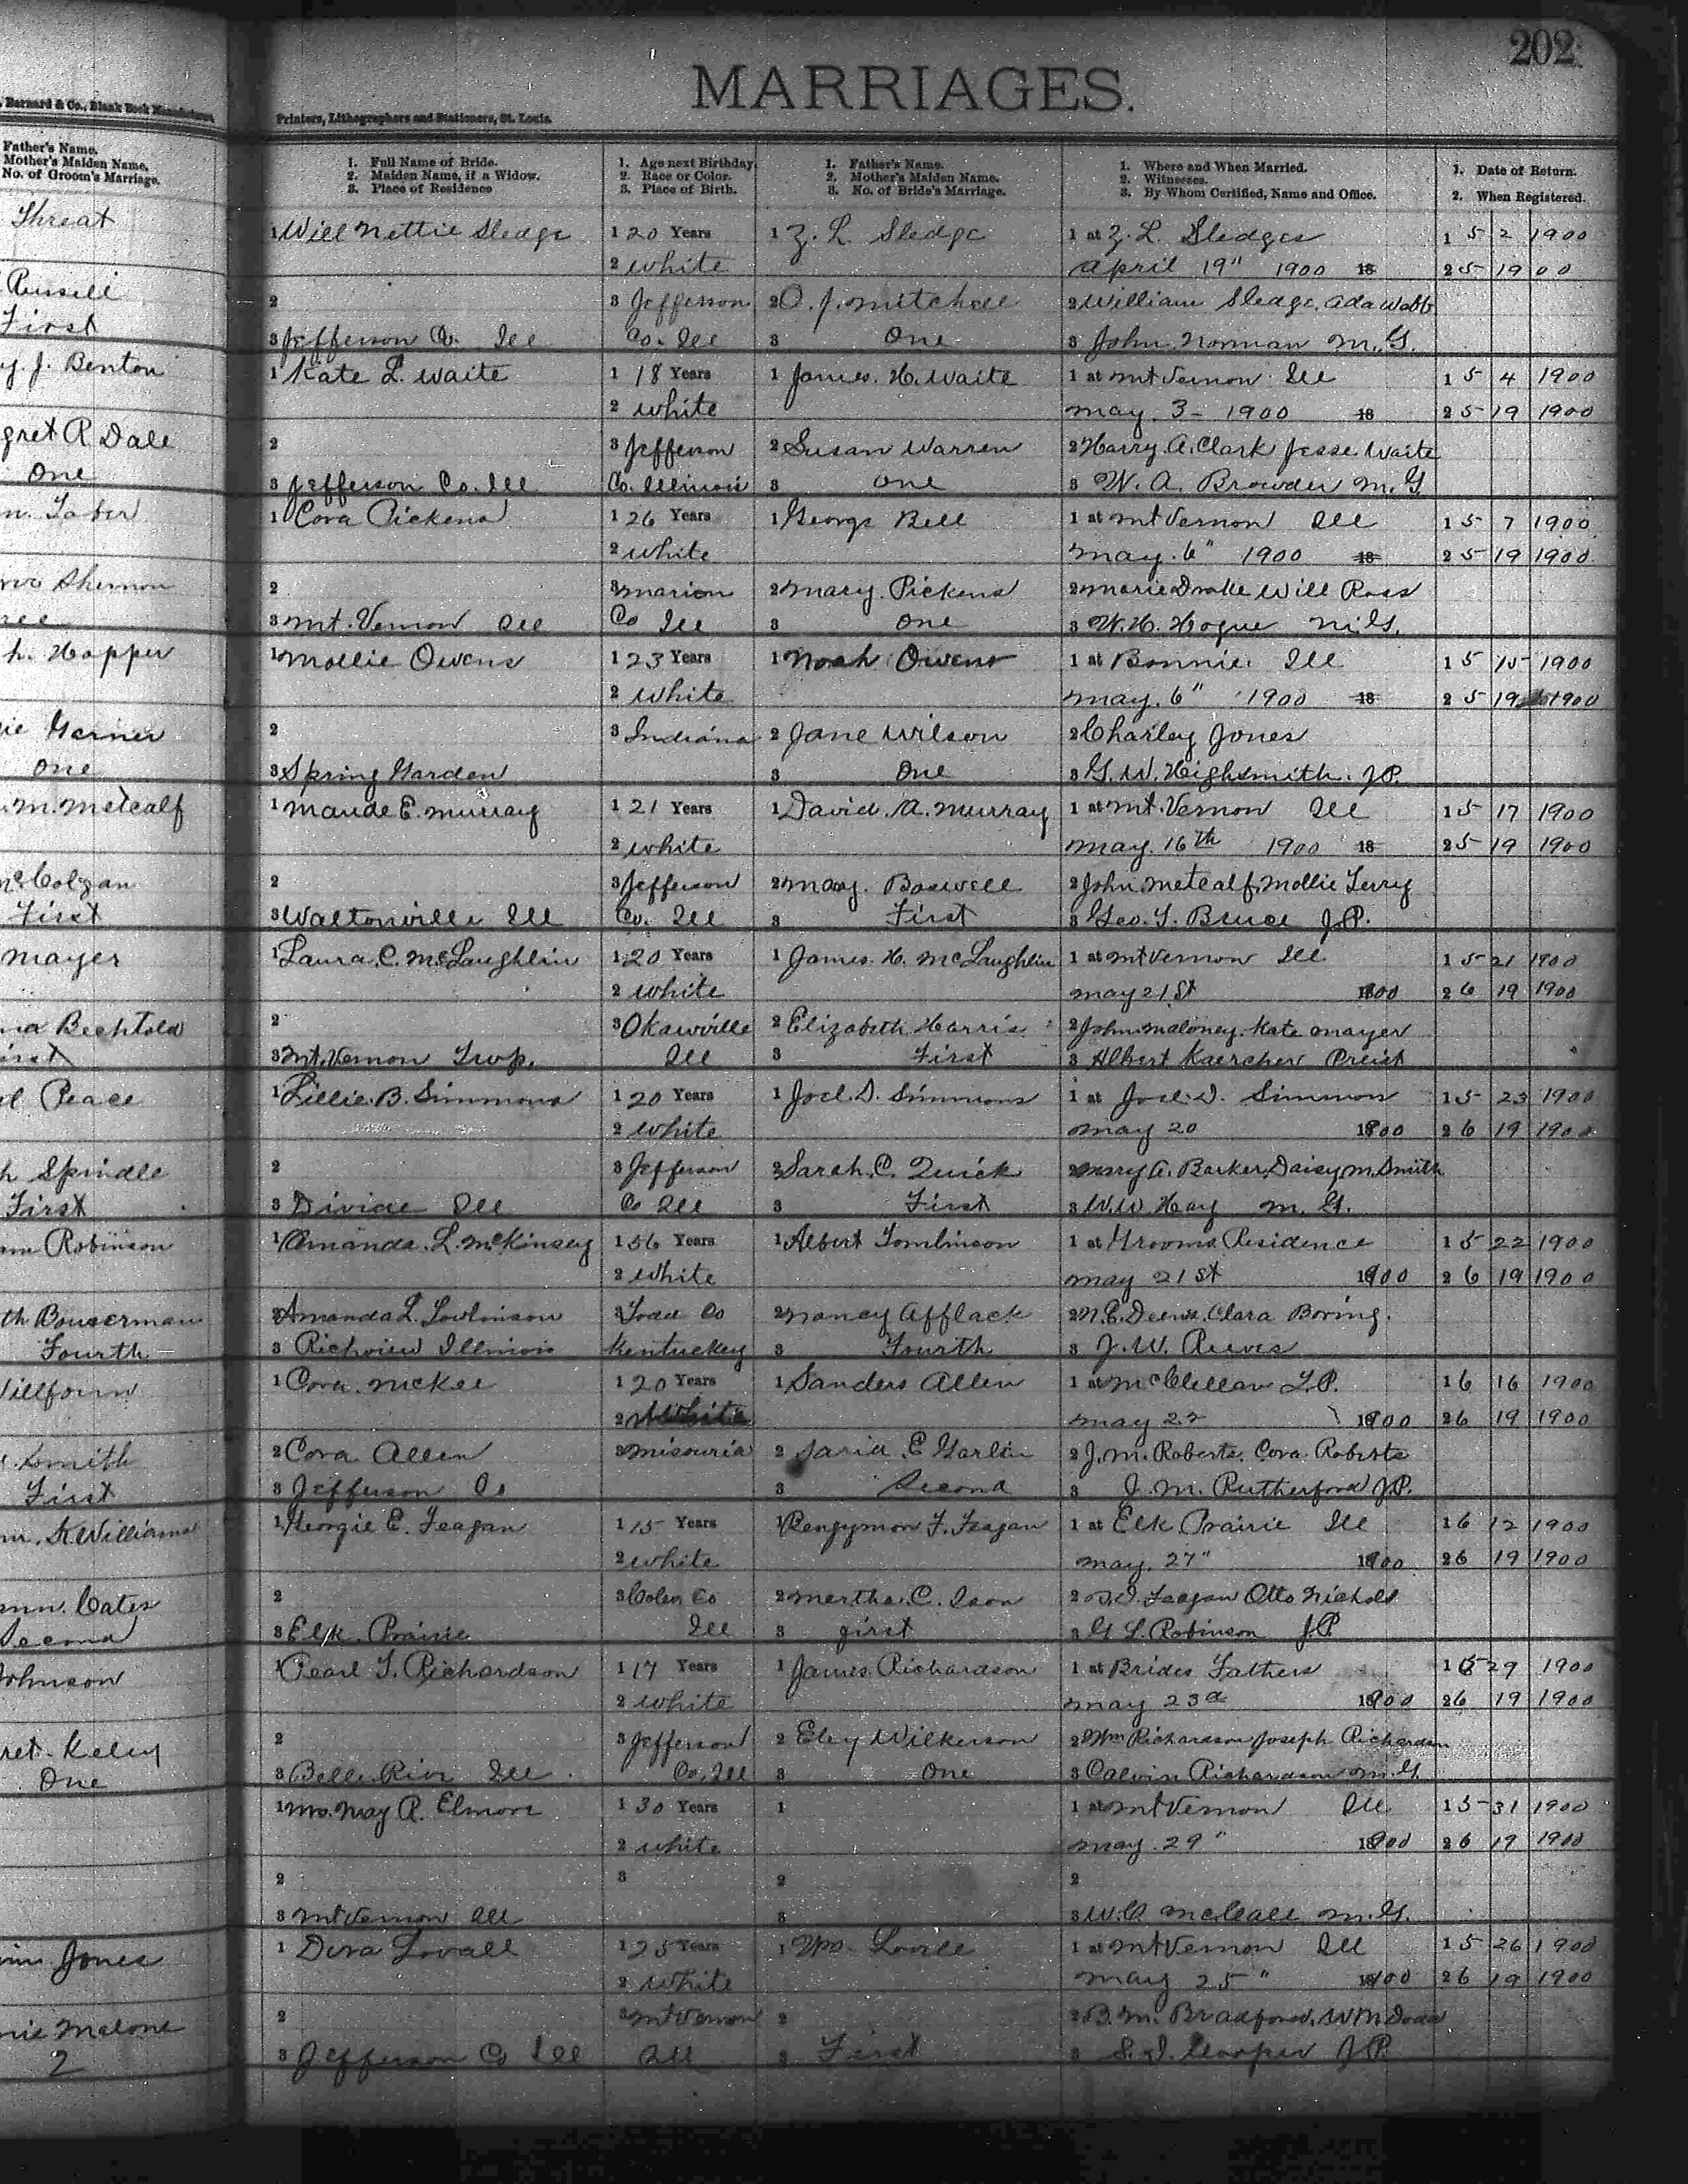 202
MARRIAGES.
Barnard & Co., Blank Book Manufacturers,
Printers, Lithographers and Stationers, St. Louis.
Father's Name.
Mother's Maiden Name.
No. of Groom's Marriage.
1. Full Name of Bride.
2. Maiden Name, if a Widow.
3. Place of Residence
1. Age next Birthday.
2. Race or Color.
3. Place of Birth.
1. Father's Name.
2. Mother's Maiden Name.
3. No. of Bride's Marriage.
1. Where and When Married.
2. Witnesses.
3. By Whom Certified, Name and Office.
1. Date of Return.
2. When Registered.
Threat
1 Will Nettie Sledge 1 20 Years 1 Z. L. Sledge 1 at Z. L. Sledges 1 5 2 1900
2 white April 19" 1900 18 2 5 19 00
Russell
2 3 Jefferson 2 O. J. Mitchell 2 William Sledge. Ada Webb
First
3 Jefferson Co. Ill Co. Ill 3 One 3 John Norman M.G.
y. J. Benton
1 Kate L. Waite 1 18 Years 1 James. H. Waite 1 at Mt Vernon Ill 1 5 4 1900
2 white May 3- 1900 18 2 5 19 1900
gret R Dale
2 3 Jefferson 2 Susan Warren 2 Harry. A. Clark Jesse Waite
One
3 Jefferson Co. Ill Co. Illinois 3 One 3 W. A. Browder M.G
m. Taber
1 Cora Pickens 1 26 Years 1 George Bell 1 at Mt Vernon Ill 1 5 7 1900
2 white May. 6" 1900 18 2 5 19 1900
Shermon
2 3 Marion 2 Mary. Pickens 2 Marie Drake Will Ross
3 Mt. Vernon Ill Co Ill 3 One 3 W. H. Hogue M.G.
h. Hopper
1 Mollie Owens 1 23 Years 1 Noah Owens 1 at Bonnie Ill 1 5 15 1900
2 white May. 6" 1900 18 2 5 19 1900
ie Garner
2 3 Indiana 2 Jane Wilson 2 Charley Jones
One
3 Spring Garden 3 One 3 G. W. Highsmith. J.P.
m. Metcalf
1 Maude E. Murray 1 21 Years 1 David. A. Murray 1 at Mt. Vernon Ill 1 5 17 1900
2 white May. 16th 1900 18 2 5 19 1900
McColgan
2 3 Jefferson 2 Mary. Boswell 2 John Metcalf, Mollie Terry
First
3 Waltonville Ill Co. Ill 3 First 3 Geo. T. Bruce J.P.
Mayer
1 Laura. C. McLaughlin 1 20 Years 1 James. H. McLaughlin 1 at Mt Vernon Ill 1 5 21 1900
2 white May 21st 1900 2 6 19 1900
na Bechtold
2 3 Okawville 2 Elizabeth Harris 2 John Maloney. Kate Mayer
irst
3 Mt. Vernon Twp. Ill 3 First 3 Albert Kaercher Preist
Peace
1 Lillie. B. Simmons 1 20 Years 1 Joel. D. Simmons 1 at Joel. D. Simmon 1 5 23 1900
2 white May 20 1900 2 6 19 1900
h Spindle
2 3 Jefferson 2 Sarah. C. Quick 2 Mary A. Barker, Daisy M. Smith
First
3 Divide Ill Co Ill 3 First 3 W. W. Hay M. G.
am Robinson
1 Amanda. L. McKinsey 1 56 Years 1 Albert Tomlinson 1 at Grooms Residence 1 5 22 1900
2 white May 21st 1900 2 6 19 1900
th Bouserman
2 Amanda L. Tomlinson 3 Todd Co 2 Nancy Afflack 2 Clara Boring.
Fourth
3 Richview Illinois Kentuckey 3 Fourth 3 J. W. Reeves
Millfourn
1 Cora. McKee 1 20 Years 1 Sanders Allen 1 at McClellan T.P. 1 6 16 1900
2 White May 22 1900 2 6 19 1900
Smith
2 Cora Allen 3 Missouria 2 E Garlin 2 J. M. Roberts. Cora Roberts
First
3 Jefferson Co 3 Second 3 J. M. Rutherford J.P.
m. K. Williams
1 Georgie E. Teagan 1 15 Years 1 Bengymon F. Feagan 1 at Elk Prairie Ill 1 6 12 1900
2 white May. 27" 1900 2 6 19 1900
ann. Cates
2 3 Coles Co 2 Martha. C. Ison 2 Feagan Otto Nichols
Second
3 Elk. Prairie Ill 3 first 3 G L. Robinson J.P.
Johnson
1 Pearl T. Richardson 1 17 Years 1 James Richardson 1 at Brides Fathers 1 5 29 1900
2 white May 23d 1900 2 6 19 1900
ret. Keley
2 3 Jefferson 2 Eley Wilkerson 2 Wm Richardson Joseph Richardson
One
3 Belle Rive Ill. Co, Ill 3 One 3 Calvin Richardson M.G.
1 Mrs. May R. Elmore 1 30 Years 1 1 at Mt Vernon Ill 1 5 31 1900
2 white May. 29" 1900 2 6 19 1900
2 3 2 2
3 Mt Vernon Ill 3 3 W. C. McCall M.G.
Jones
1 Dora Lovall 1 25 Years 1 Wm. 1 at Mt Vernon Ill 1 5 26 1900
2 White May 25" 1900 2 6 19 1900
nie Malone
2 3 Mt Vernon 2 2 B. M. Bradford. W M Dodd
2
3 Jefferson Co Ill Ill 3 First 3 S. J. Hooper J.P.